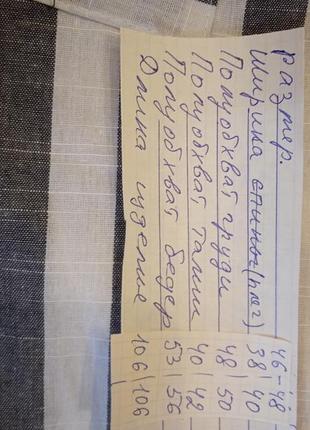 размер. 46-48
Ширина спины (плеч) 38|40
Полуобхват груди 48|50
Полуобхват талии 40|42
Полуобхват бедер 53|56
Длина изделие 106|106